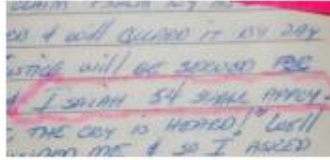 & will GUARD IT BY DAY
JUSTICE will BE SERVED FOR
& ISAIAH 54 SHALL APPLY.
THE CRY IS HEARD! Well
ME & SO I ASKED